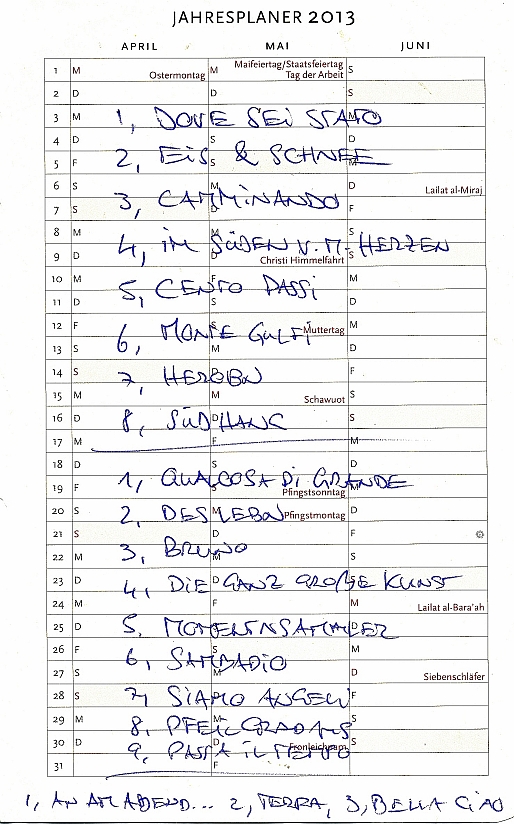 JAHRESPLANER 2013
APRIL MAI JUNI
1 M Ostermontag M Maifeiertag/Staatsfeiertag Tag der Arbeit S
2 D D S
3 M 1, DOVE SEI STATO M
4 D S D
5 F 2, EIS & SCHNEE
6 S M D Lailat al-Miraj
7 S 3, CAMMINANDO F
8 M M S
9 D 4, IM SÜDEN V. M. HERZEN Christi Himmelfahrt S
10 M F M
11 D 5, CENTO PASSI S D
12 F 6, MONTE GULFI Muttertag M
13 S M D
14 S 7, F
15 M M Schawuot S
16 D 8, SÜDHANG D S
17 M F M
18 D S D
19 F 1, QUALCOSA DI GRANDE Pfingstsonntag M
20 S 2, DES LEBN M Pfingstmontag D
21 S D F
22 M 3, BRUNO M S
23 D 4, DIE GANZ GROßE KUNST D
24 M F M Lailat al-Bara'ah
25 D 5. D
26 F 6, S M
27 S M D Siebenschläfer
28 S 7, SIAMO ANGELI F
29 M 8. M S
30 D 9, PASSA IL TEMPO D Fronleichnam S
31 F
1, AN AM ABEND... 2, TERRA, 3, BELLA CIAO